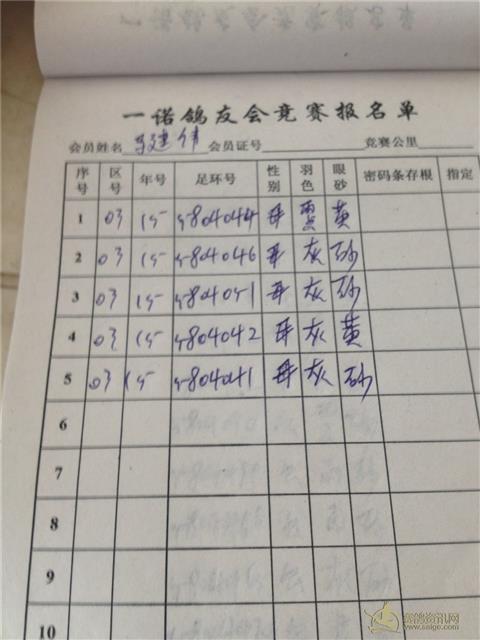 一诺鸽友会竞赛报名单
会员姓名 建伟 会员证号 竞赛公里
序号 区号 年号 足环号 性别 羽色 眼砂 密码条存根 指定
1 03 15 5804044 母 黄
2 03 15 5804046 母 灰 砂
3 03 15 5804051 母 灰 砂
4 03 15 5804042 母 灰 黄
5 03 15 5804041 母 灰 砂
6
7
8
9
10
赛鸽资讯网
www.saige.com